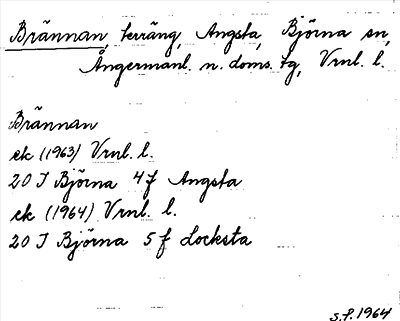 Brännan, terräng, Angsta, Björna sn,
Ångermanl. n. doms. tg, Vrnl. l.
Brännan
ek (1963) Vrnl. l.
20 I Björna 4 f Angsta
ek (1964) Vrnl. l.
20 I Björna 5 f Locksta
s.f. 1964